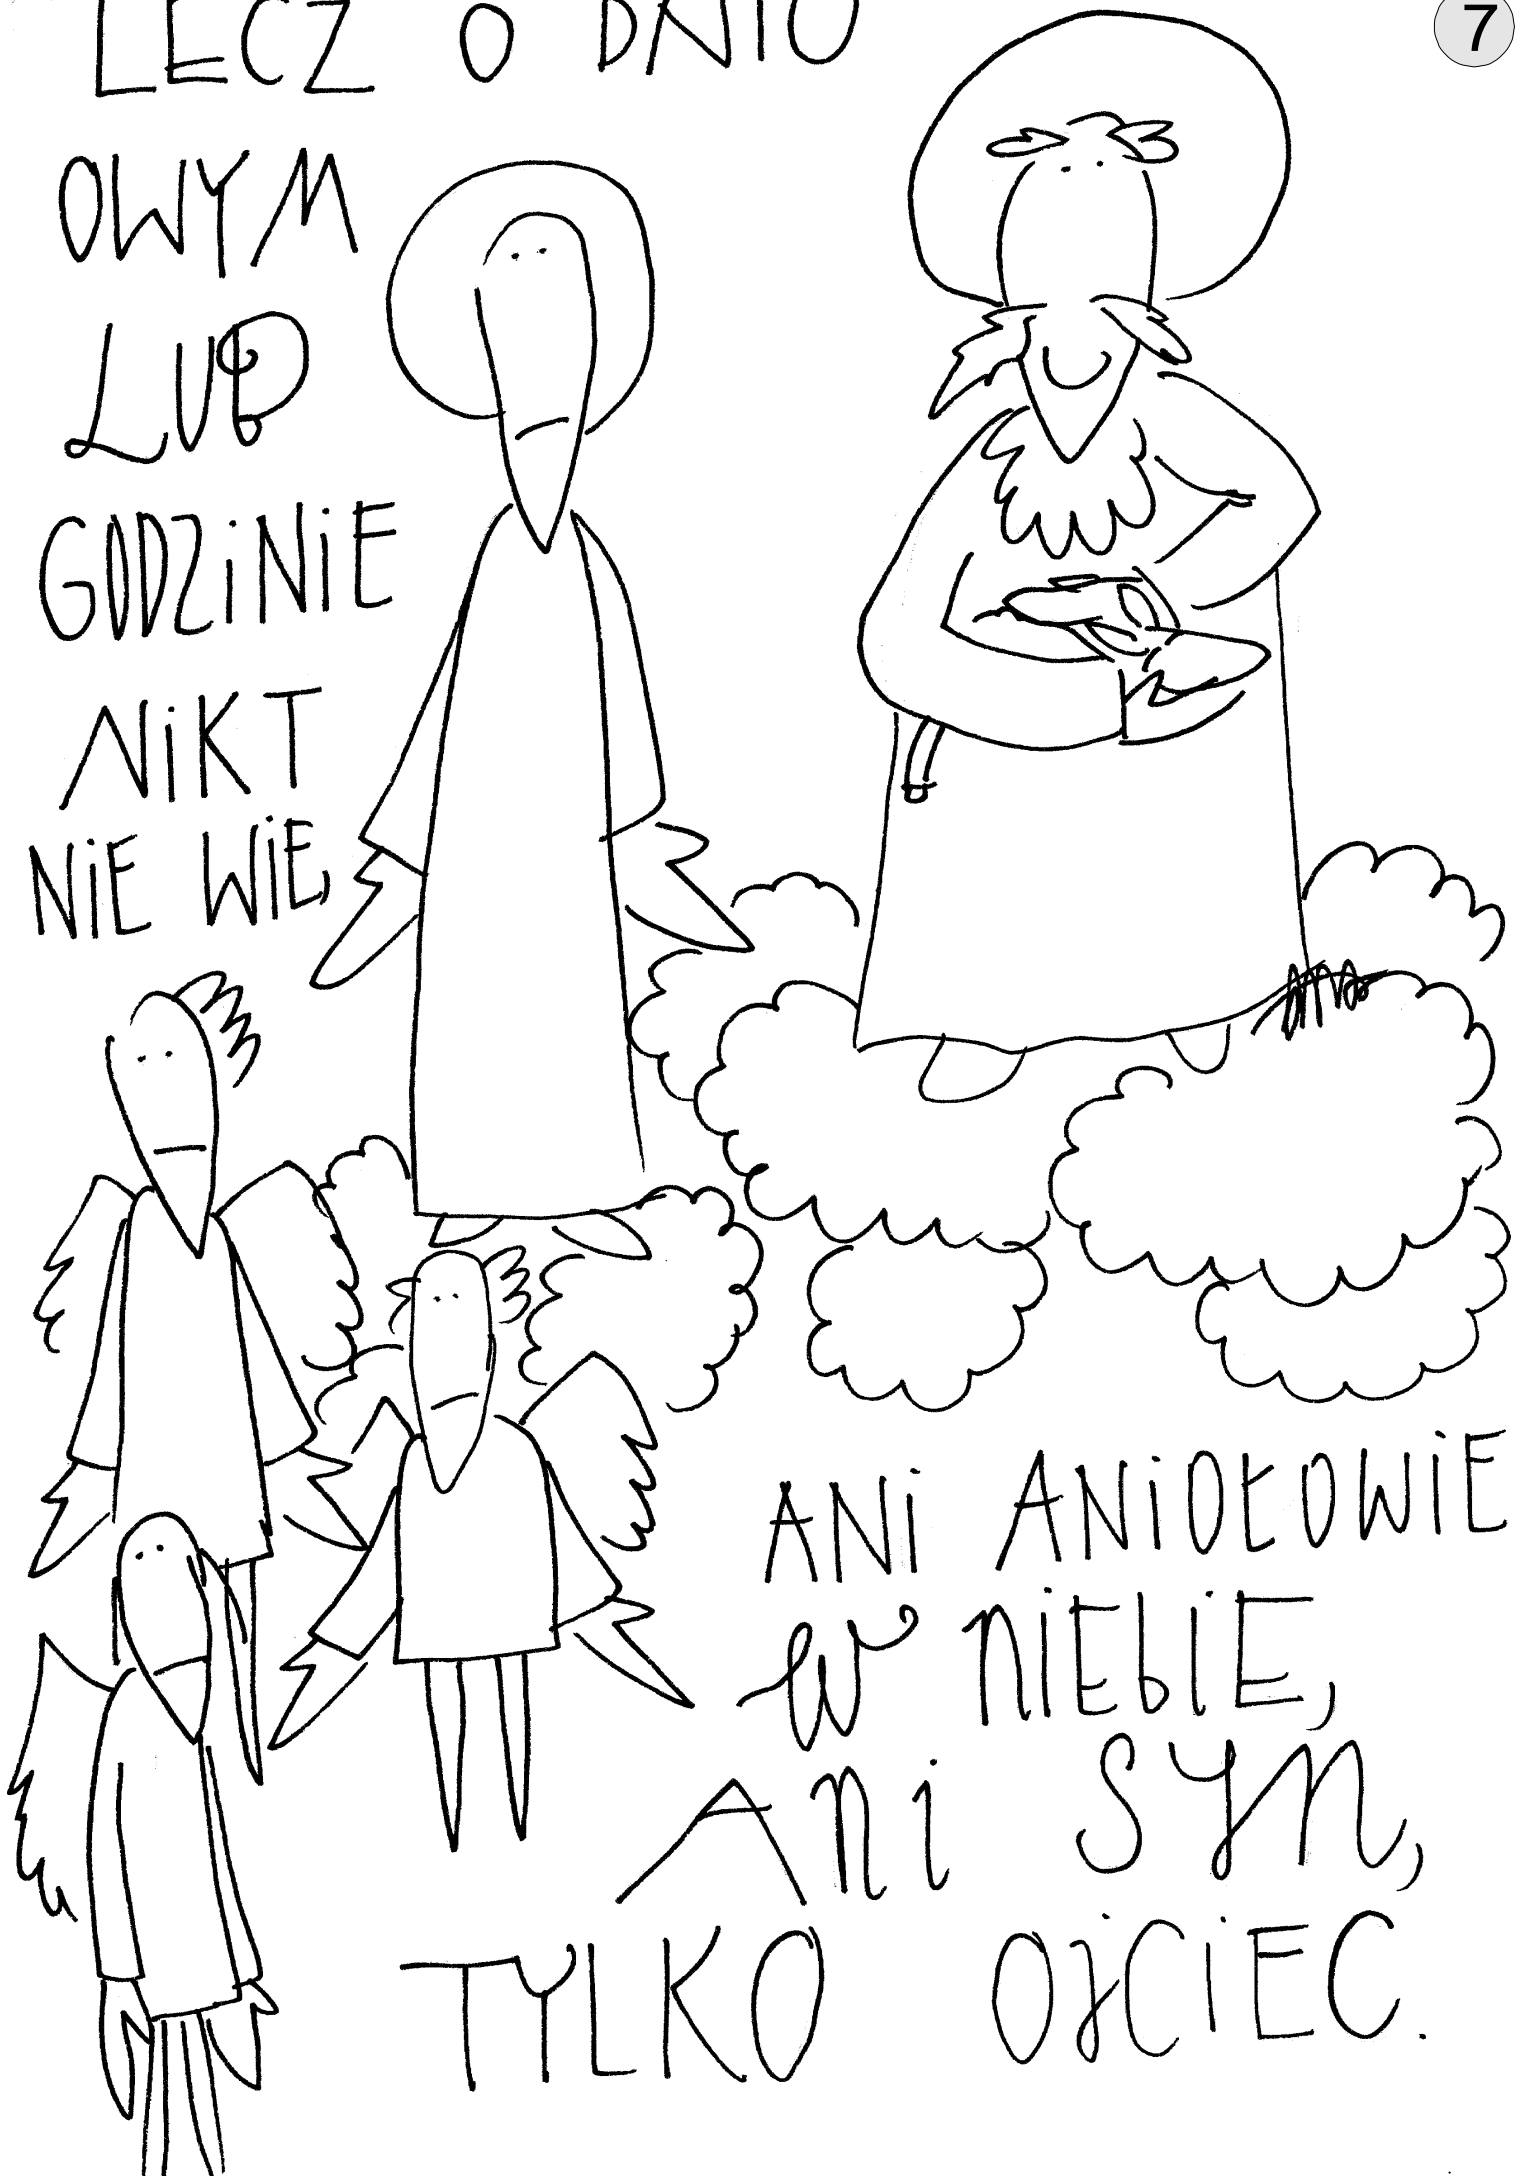 LECZ O DNIU
7
OWYM
LUB
GODZINIE
NIKT
NIE WIE,
ANI ANIOŁOWIE
W NIEBIE,
Ani SYN,
TYLKO OJCIEC.